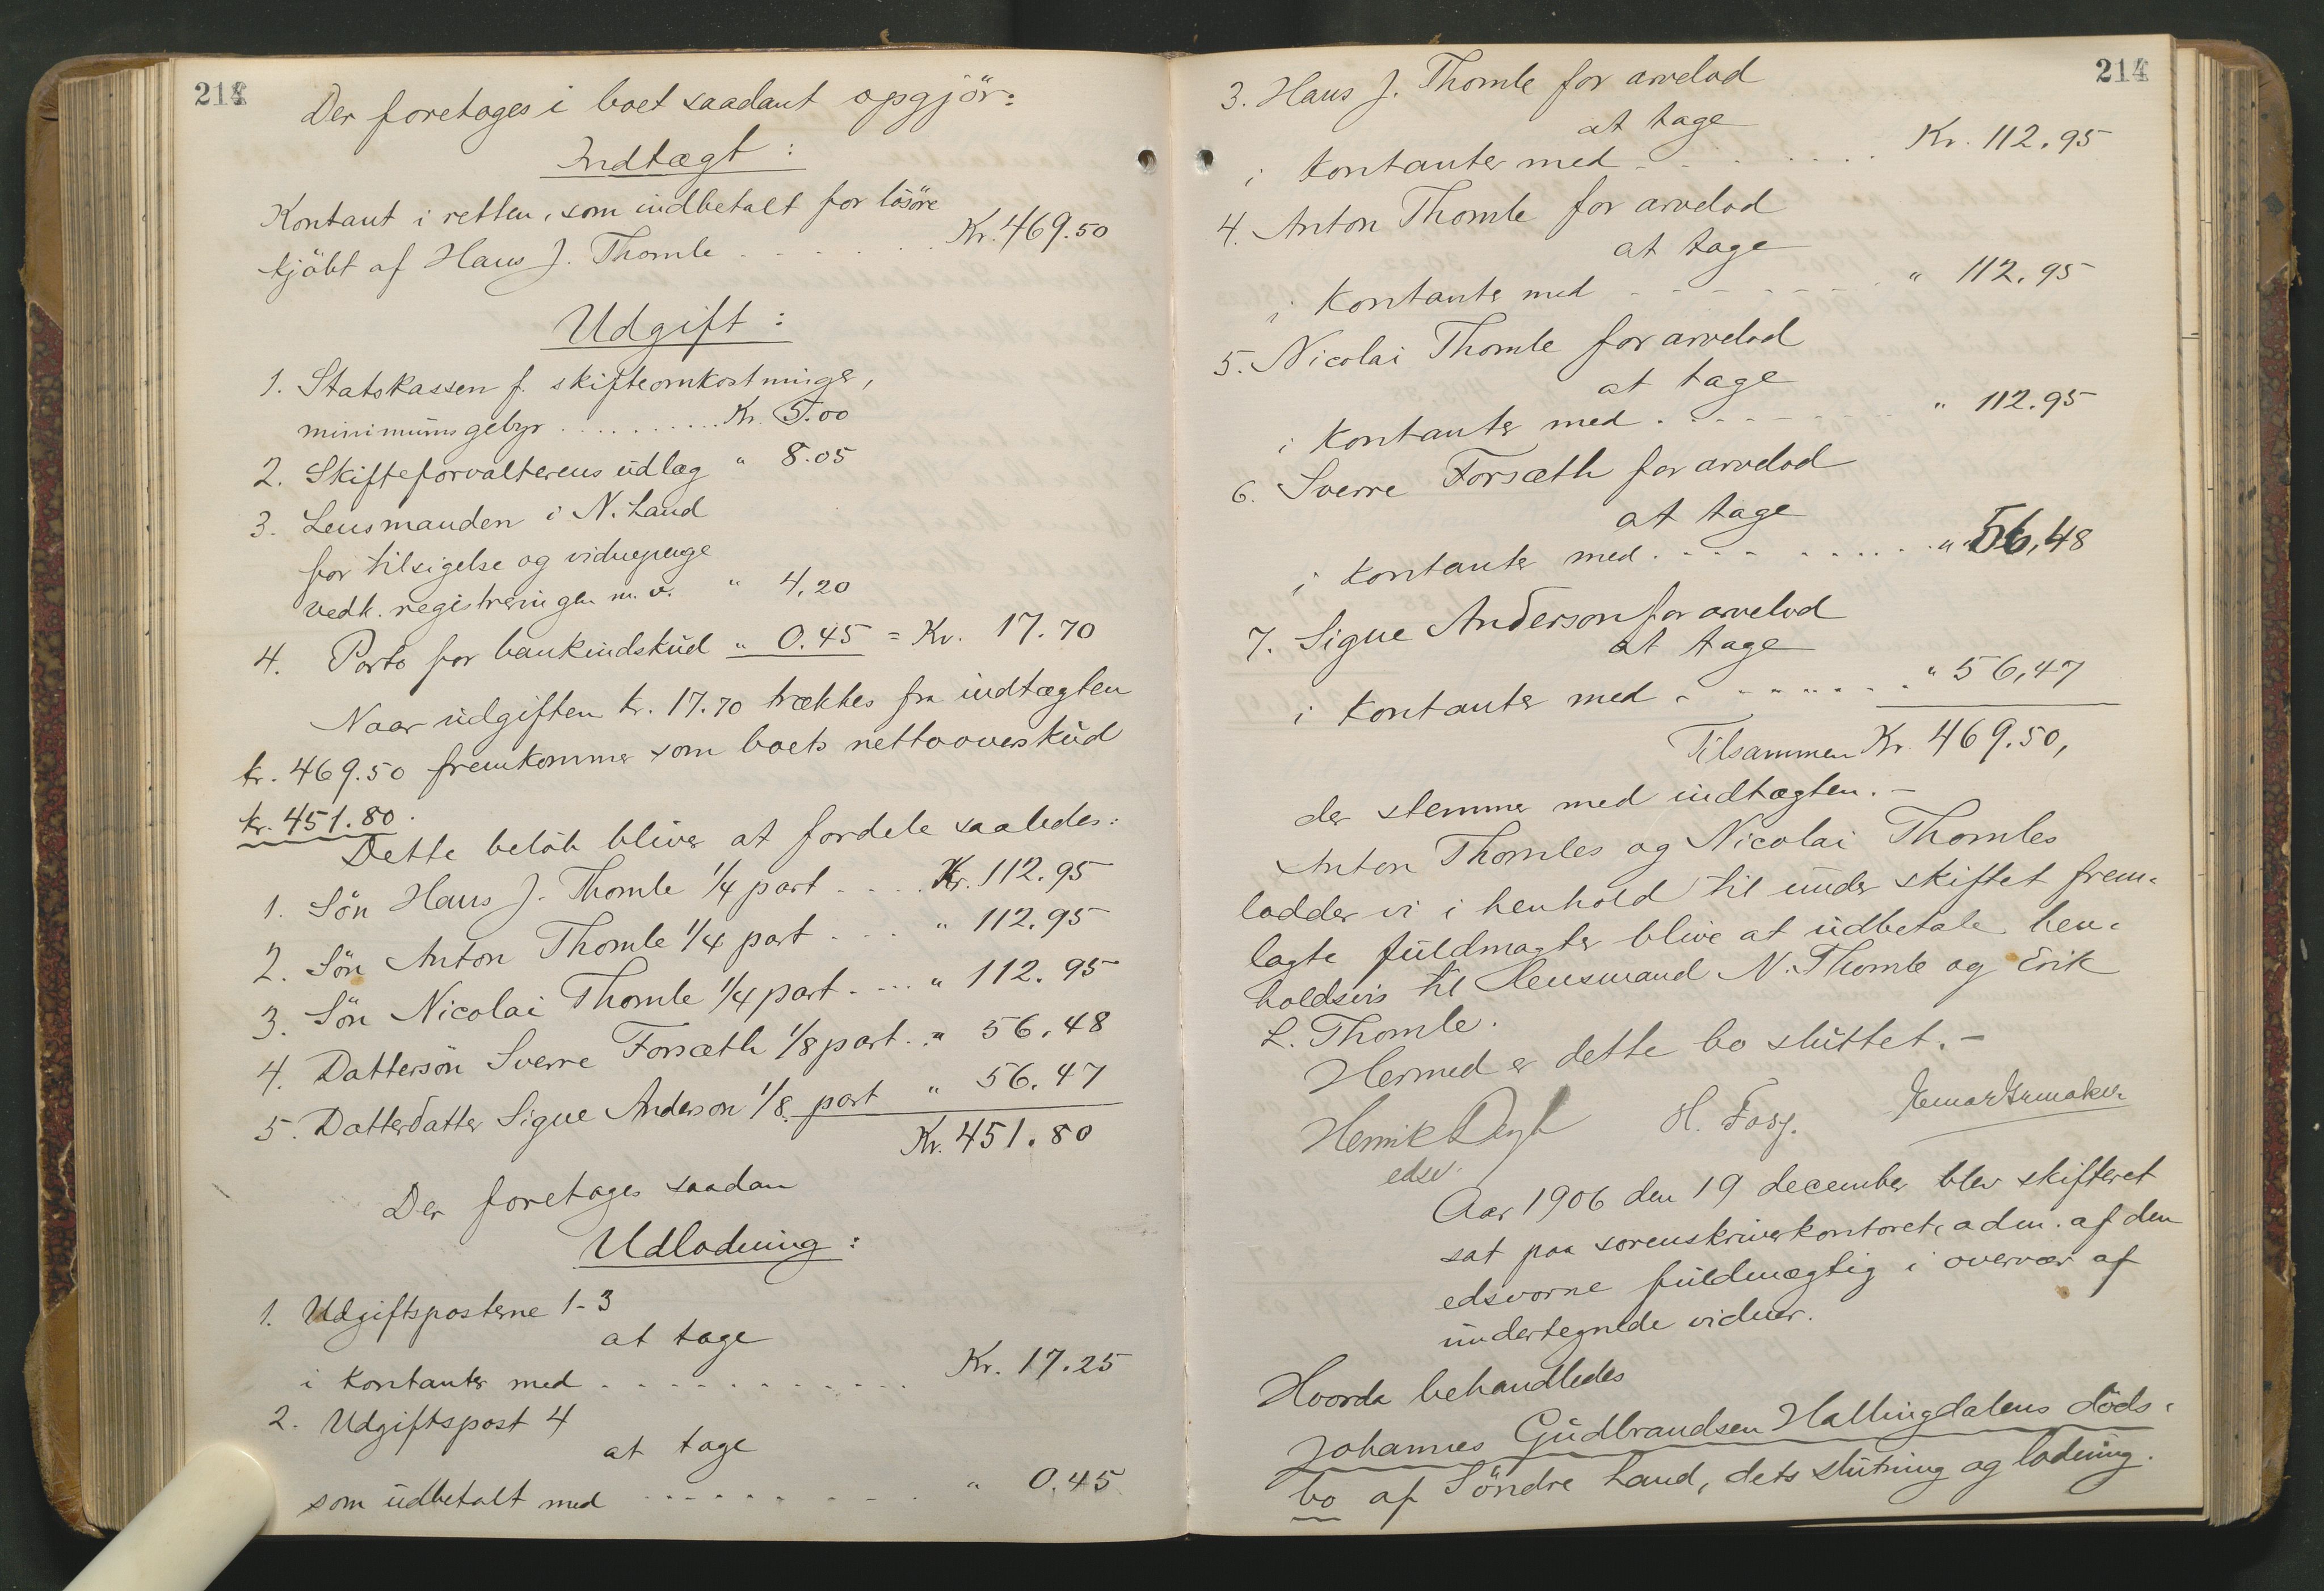 214
Der foretages i boet saadant opgjör:
Indtægt:
Kontant i retten, som indbetalt for lösöre
kjöbt af Hans J. Thomle . . . . . Kr. 469.50
Udgift:
1. Statskassen f. skifteomkostninger,
minimumsgebyr . . . . . . . . . . Kr. 5.00
2. Skifteforvalterens udlæg " 8.05
3. Lensmanden i N. Land
for tilsigelse og vidnepenge
vedk. registreringen m.v. " 4,20
4. Porto for bankindskud " 0.45 = Kr. 17.70
Naar udgiften kr. 17.70 trækkes fra indtægten
kr. 469.50 fremkommer som boets nettooverskud
kr. 451.80.
Dette beløb bliver at fordele saaledes:
1. Sön Hans J. Thomle 1/4 part . . . . Kr. 112.95
2. Sön Anton Thomle 1/4 part . . . " 112.95
3. Sön Nicolai Thomle 1/4 part . . . . " 112.95
4. Dattersön Sverre Forsæth 1/8 part . . " 56.48
5. Datterdatter Signe Anderson 1/8 part " 56.47
Kr. 451.80
Der foretages saadan
Udlodning:
1. Udgiftsposterne 1-3
at tage
i kontanter med . . . . . . . . . . . . Kr. 17.25
2. Udgiftspost 4
at tage
som udbetalt med . . . . . . . . . . " 0.45
214
3. Hans J. Thomle for arvelod
at tage
i kontanter med . . . . . . . . Kr. 112.95
4. Anton Thomle for arvelod
at tage
i kontanter med . . . . . . . . " 112.95
5. Nicolai Thomle for arvelod
at tage
i kontanter med . . . . . . . . " 112.95
6. Sverre Forsæth for arvelod
at tage
i kontanter med . . . . . . . . . . " 56,48
7. Signe Anderson for arvelod
at tage
i kontanter med . . . . . . . . " 56,47
Tilsammen Kr. 469.50,
der stemmer med indtægten. -
Anton Thomles og Nicolai Thomles
lodder vi i henhold til under skiftet frem-
lagte fuldmagter blive at udbetale hen-
holdsvis til lensmand N. Thomle og Erik
L. Thomle.
Hermed er dette bo sluttet. -
Henrik H. Fosj.
edsv.
Aar 1906 den 19 december blev skifteret
sat paa sorenskriverkontoret, adm. af den
edsvorne fuldmægtig i overvær af
undertegnede vidner.
Hvorda behandledes
Johannes Gudbrandsen Hallingdalens döds-
bo af Söndre Land, dets slutning og lodning.